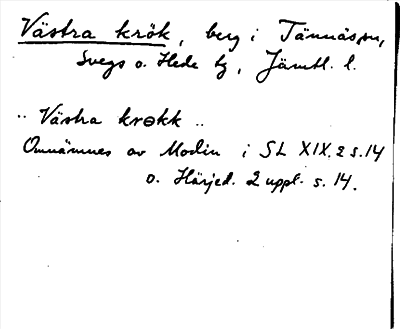 Västra krök, berg i Tännäs sn,
Svegs o. Hede tg, Jämtl. l.
"Västra krɵkk"
Omnämnes av Modin i SL XIX.2 s.14
o. Härjed. 2 uppl. s. 14.